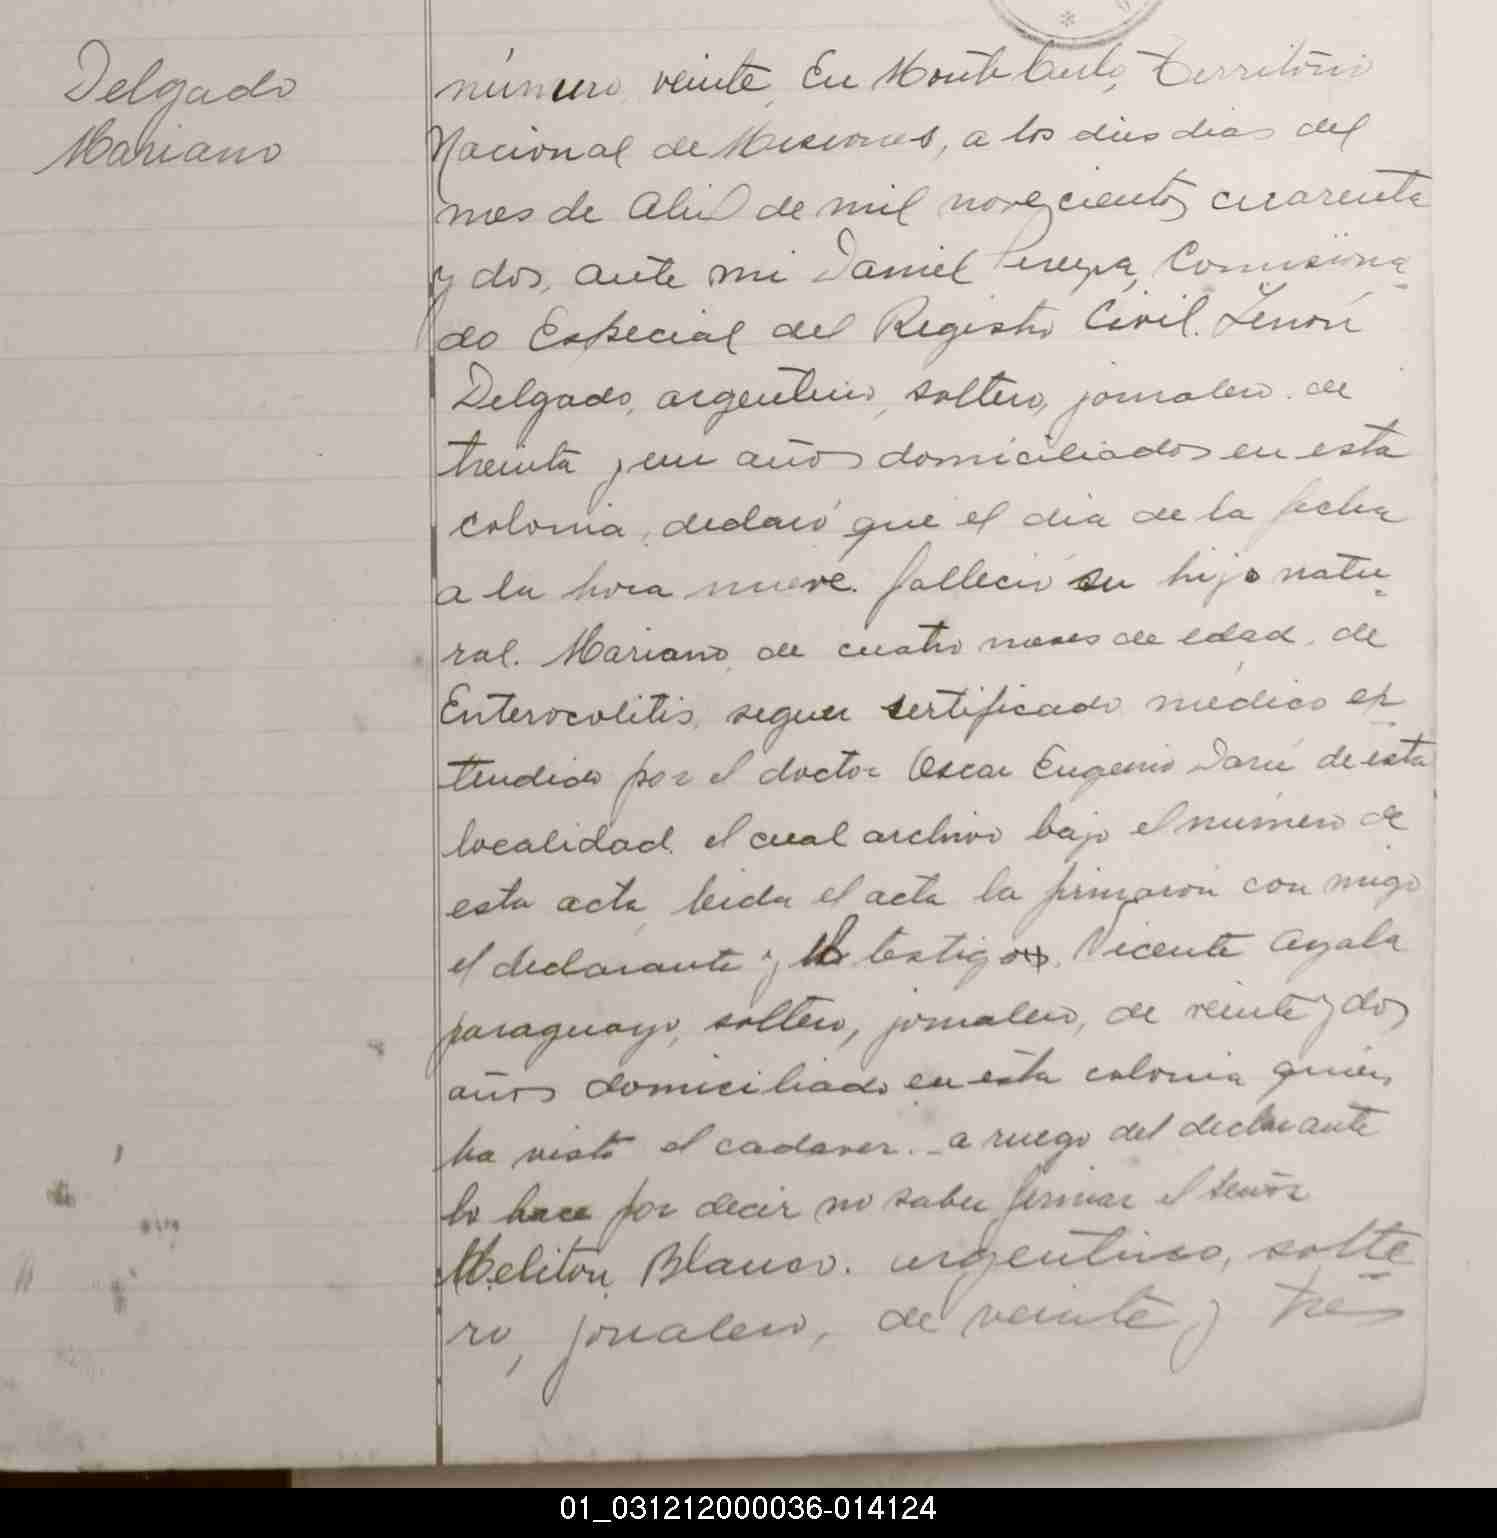 Delgado
Mariano
número veinte, En Monte Carlo, Territorio
Nacional de Misiones, a los dies dias del
mes de Abril de mil novecientos cuarenta
y dos, ante mi Daniel Pereyra, Comisiona-
do Especial del Registro Civil. Zenón
Delgado, argentino, soltero, jornalero. de
treinta y un años domiciliados en esta
colonia, declaró que el dia de la fecha
a la hora nueve. falleció su hijo natu-
ral. Mariano, de cuatro meses de edad. de
Enterocolitis, segun sertificado médico ex-
tendido por el doctor Oscar Eugenio Darú de esta
localidad. el cual archivo bajo el número de
esta acta, leida el acta la firmaron con migo
el declarante y el testigo, Vicente Ayala
paraguayo, soltero, jornalero, de veinte y dos
años domiciliado en esta colonia quien
ha visto el cadaver. - a ruego del declarante
lo hace por decir no saber firmar el señor
Meliton Blanco. argentino, solte-
ro, jonalero, de veinte y tres
01_031212000036-014124